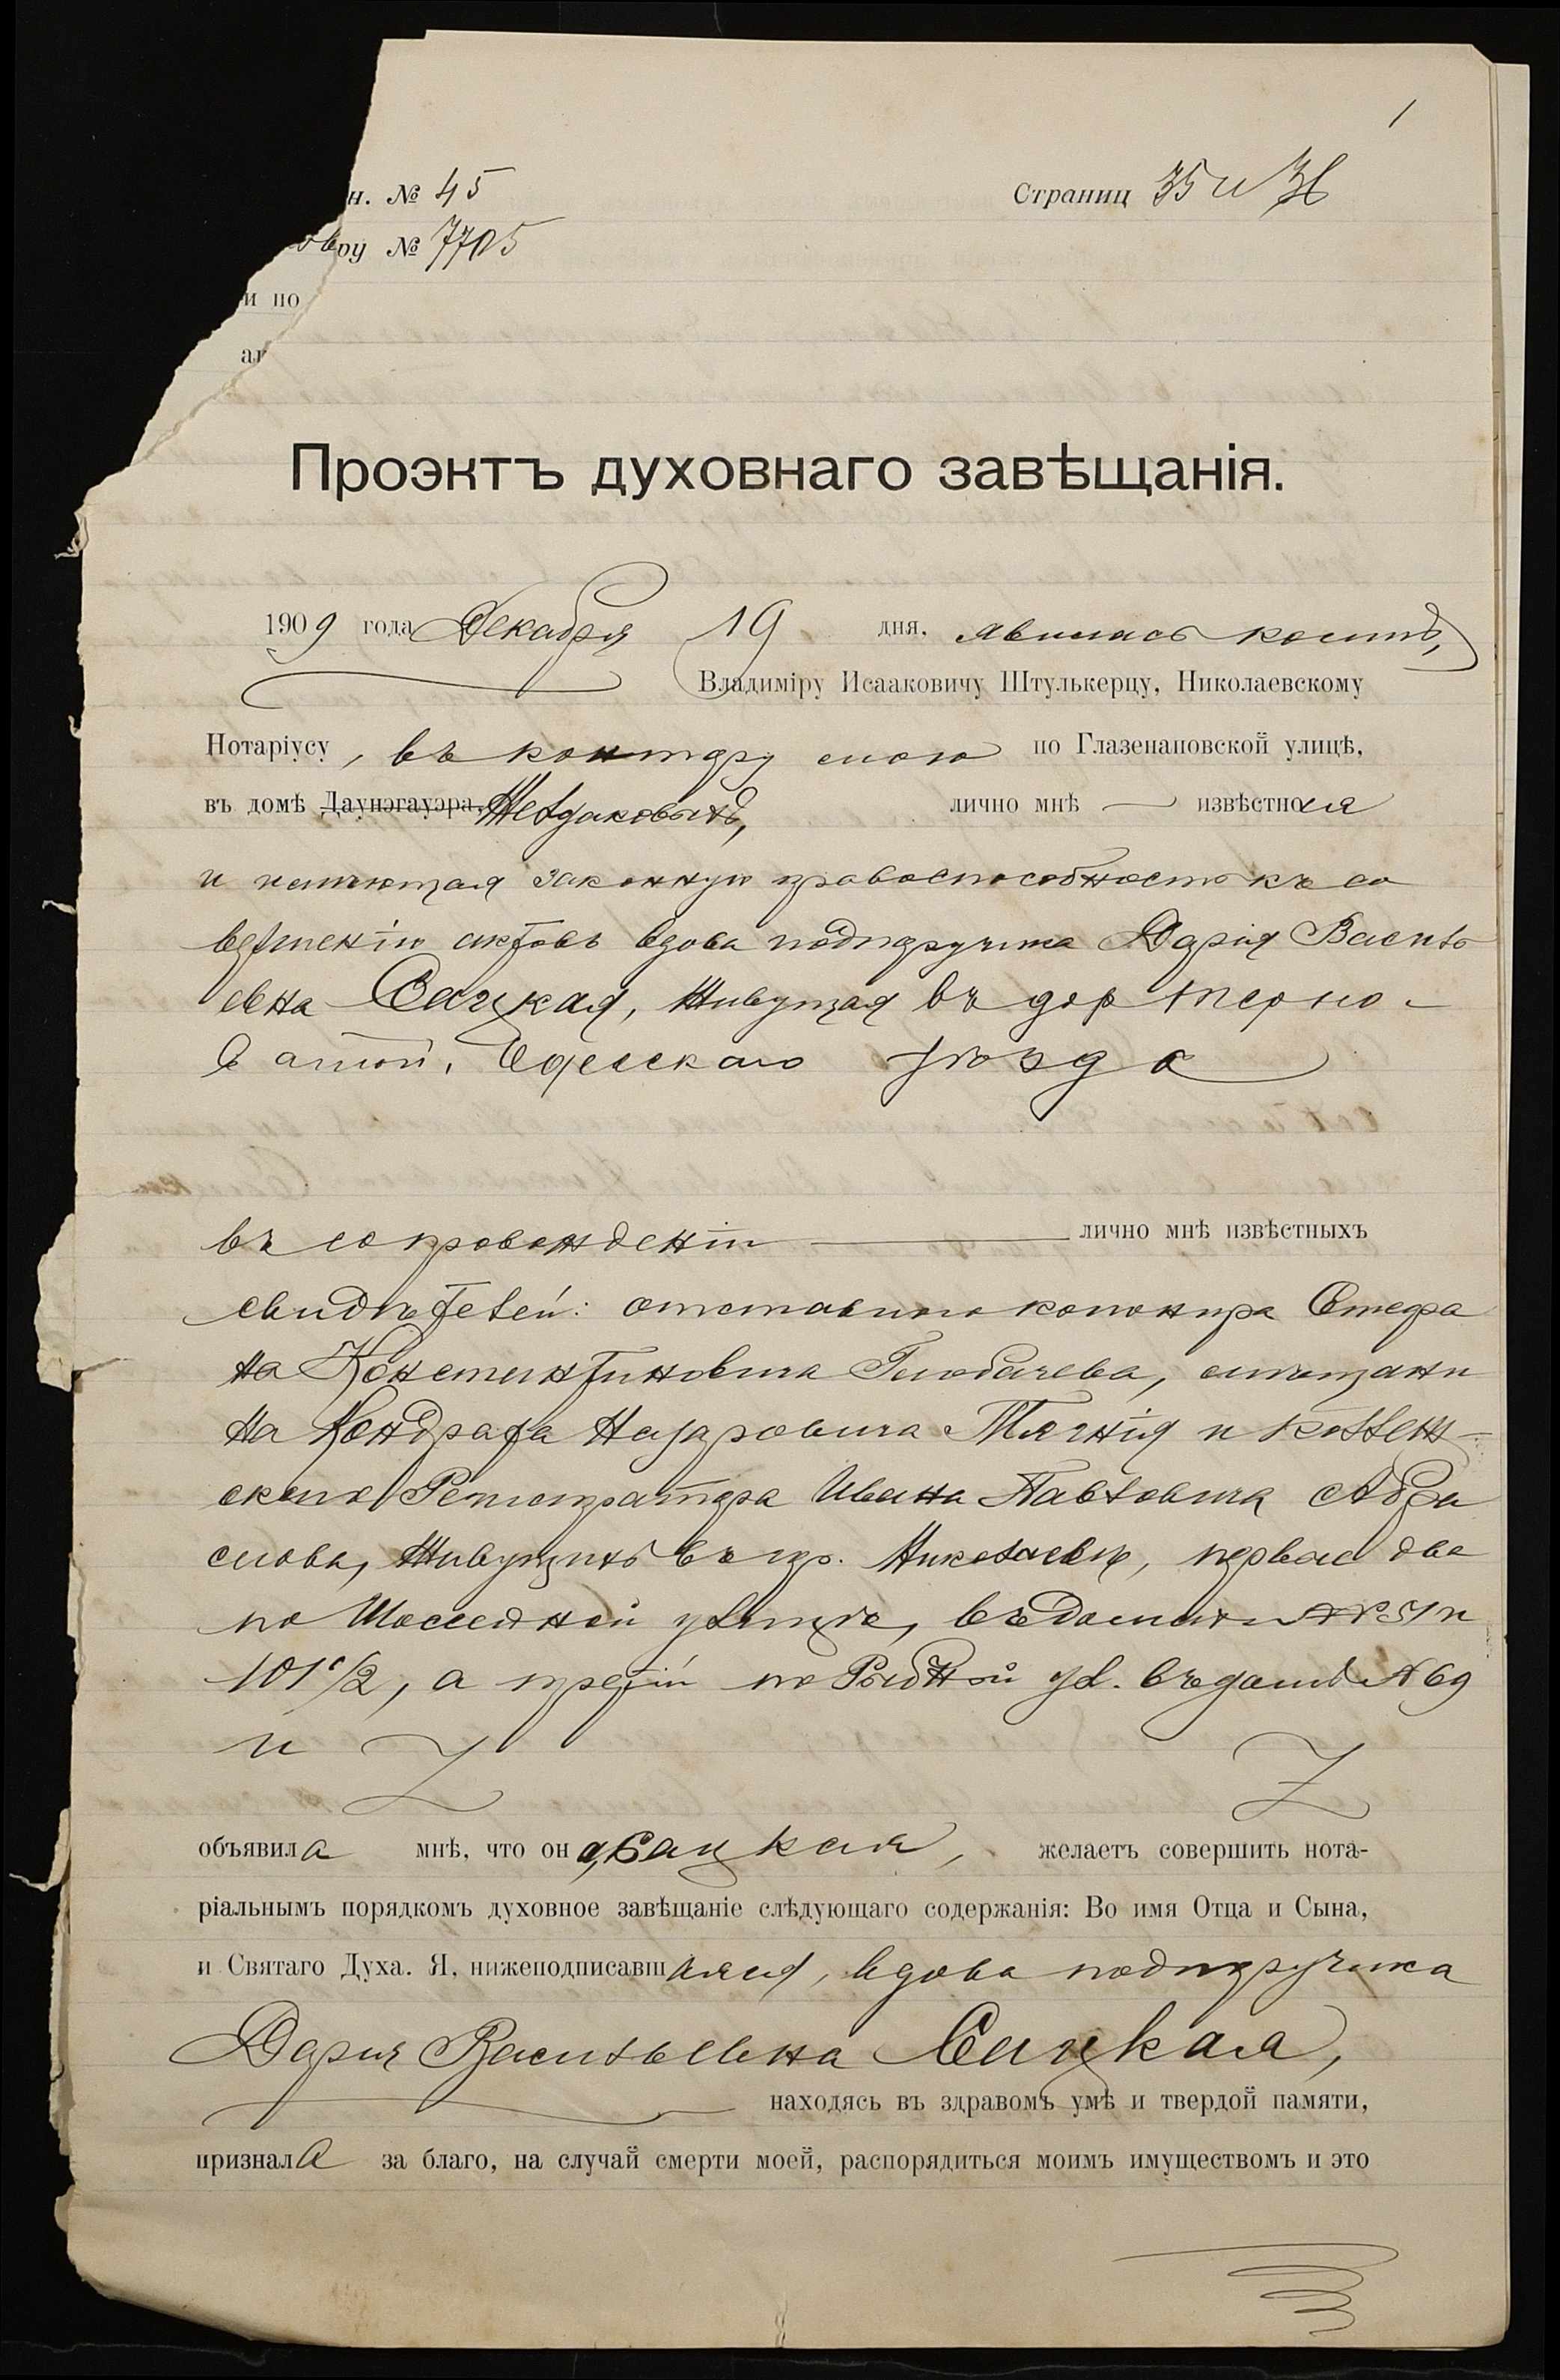 1
н. № 45
Страниц 35 и 36
ру № 7705
и по
Проэктъ духовнаго завѣщанія.
1909 года Декабря 19 дня, явилась ко мнѣ,
Владиміру Исааковичу Штулькерцу, Николаевскому
Нотаріусу, въ контору мою по Глазенаповской улицѣ,
въ домѣ Даунэгауэра, лично мнѣ — извѣстная
и имѣющая законную правоспособность къ со
вершенію актовъ вдова подпоручика Дарія Василь
евна Сацкая, живущая въ дер Терно-
ватой, Одесскаго уѣзда
въ сопровожденіи — лично мнѣ извѣстныхъ
свидѣтелей: отставного канонира Стефа
на Константиновича мѣщани
на Кондрата Назаровича и Коллеж-
скаго Регистратора Ивана Павловича Абра
мова, живущихъ въ гор. Николаевѣ, первые два
по Шоссейной улицѣ, въ домахъ № 51 и
101/2, а третій по Рыбной ул. въ домѣ № 69
и
объявила мнѣ, что она, Сацкая, желаетъ совершить нота-
ріальнымъ порядкомъ духовное завѣщаніе слѣдующаго содержанія: Во имя Отца и Сына,
и Святаго Духа. Я, нижеподписавшаяся, вдова подпоручика
Дарія Васильевна Сацкая,
находясь въ здравомъ умѣ и твердой памяти,
признала за благо, на случай смерти моей, распорядиться моимъ имуществомъ и это